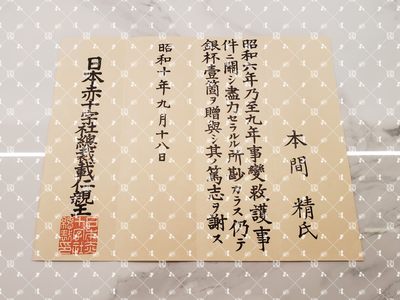 本間 精氏
昭和六年乃至九年事變救護事
件ニ關シ盡力セラルル所尠カラス仍テ
銀杯壹箇ヲ贈與シ其ノ篤志ヲ謝ス
昭和十年九月十八日
日本赤十字社總裁載仁親王